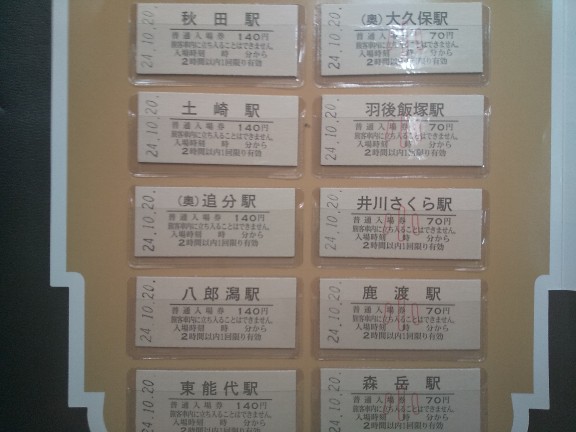 24.10.20.
秋田駅
普通入場券 140円
旅客車内に立ち入ることはできません。
入場時刻 時 分から
2時間以内1回限り有効
24.10.20.
(奥)大久保駅
普通入場券 70円
旅客車内に立ち入ることはできません。
入場時刻 時 分から
2時間以内1回限り有効
24.10.20.
土崎駅
普通入場券 140円
旅客車内に立ち入ることはできません。
入場時刻 時 分から
2時間以内1回限り有効
24.10.20.
羽後飯塚駅
普通入場券 70円
旅客車内に立ち入ることはできません。
入場時刻 時 分から
2時間以内1回限り有効
24.10.20.
(奥)追分駅
普通入場券 140円
旅客車内に立ち入ることはできません。
入場時刻 時 分から
2時間以内1回限り有効
24.10.20.
井川さくら駅
普通入場券 70円
旅客車内に立ち入ることはできません。
入場時刻 時 分から
2時間以内1回限り有効
24.10.20.
八郎潟駅
普通入場券 140円
旅客車内に立ち入ることはできません。
入場時刻 時 分から
2時間以内1回限り有効
24.10.20.
鹿渡駅
普通入場券 70円
旅客車内に立ち入ることはできません。
入場時刻 時 分から
2時間以内1回限り有効
24.10.20
東能代駅
普通入場券 140円
旅客車内に立ち入ることはできません。
入場時刻 時 分から
24.10.20.
森岳駅
普通入場券 70円
旅客車内に立ち入ることはできません。
入場時刻 時 分から